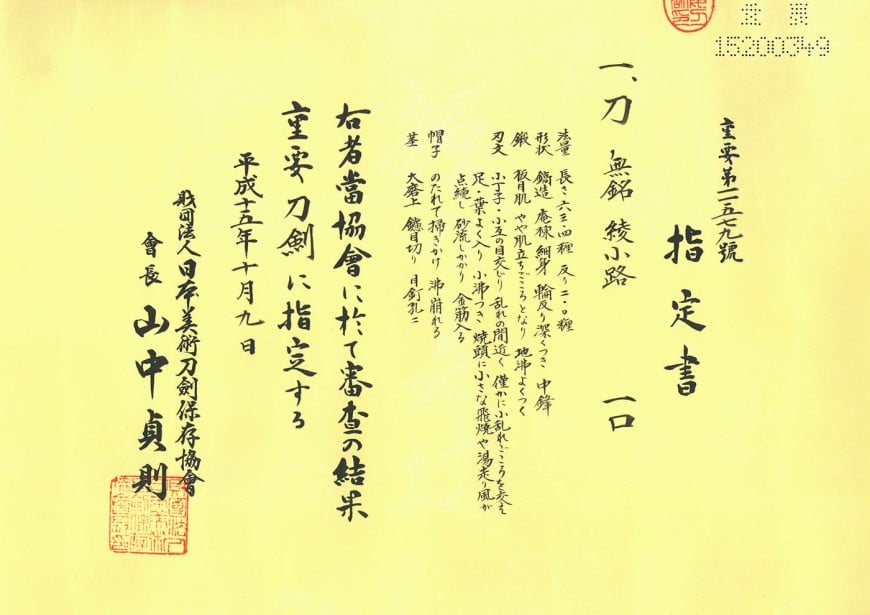 重票
15200349
重要第一一五七九號
指定書
一、刀 無銘 綾小路 一口
法量 長さ 六三・四糎 反り 二・〇糎
形状 鎬造 庵棟 細身 輪反り深くつき 中鋒
鍛 板目肌 やや肌立ちごころとなり 地沸よくつく
刃文 小丁子・小互の目交じり 乱れの間近く 僅かに小乱れごころを交え
足・葉よく入り 小沸つき 焼頭に小さな飛焼や湯走り風が
点続し 砂流しかかり 金筋入る
帽子 のたれて掃きかけ 沸崩れる
茎 大磨上 鑢目切り 目釘孔二
右者當協會に於て審査の結果
重要刀劍に指定する
平成十五年十月九日
財団法人日本美術刀劍保存協會
會長 山中貞則